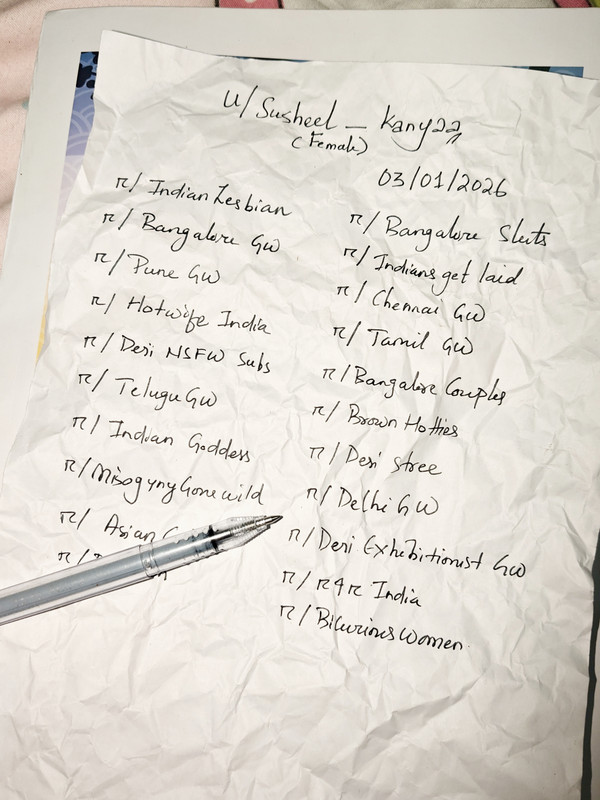 u/Susheel_Kanyaa
(Female)
03/01/2026
r/IndianLesbian
r/Bangalore GW
r/Pune GW
r/Hotwife India
r/Desi NSFW Subs
r/TeluguGW
r/Indian Goddess
r/MisogynyGonewild
r/Asian
r/
r/Bangalore Sluts
r/Indians get laid
r/Chennai GW
r/Tamil GW
r/Bangalore Couples
r/Brown Hotties
r/Desi stree
r/Delhi GW
r/Desi Exhibitionist GW
r/R4R India
r/Bicurious women